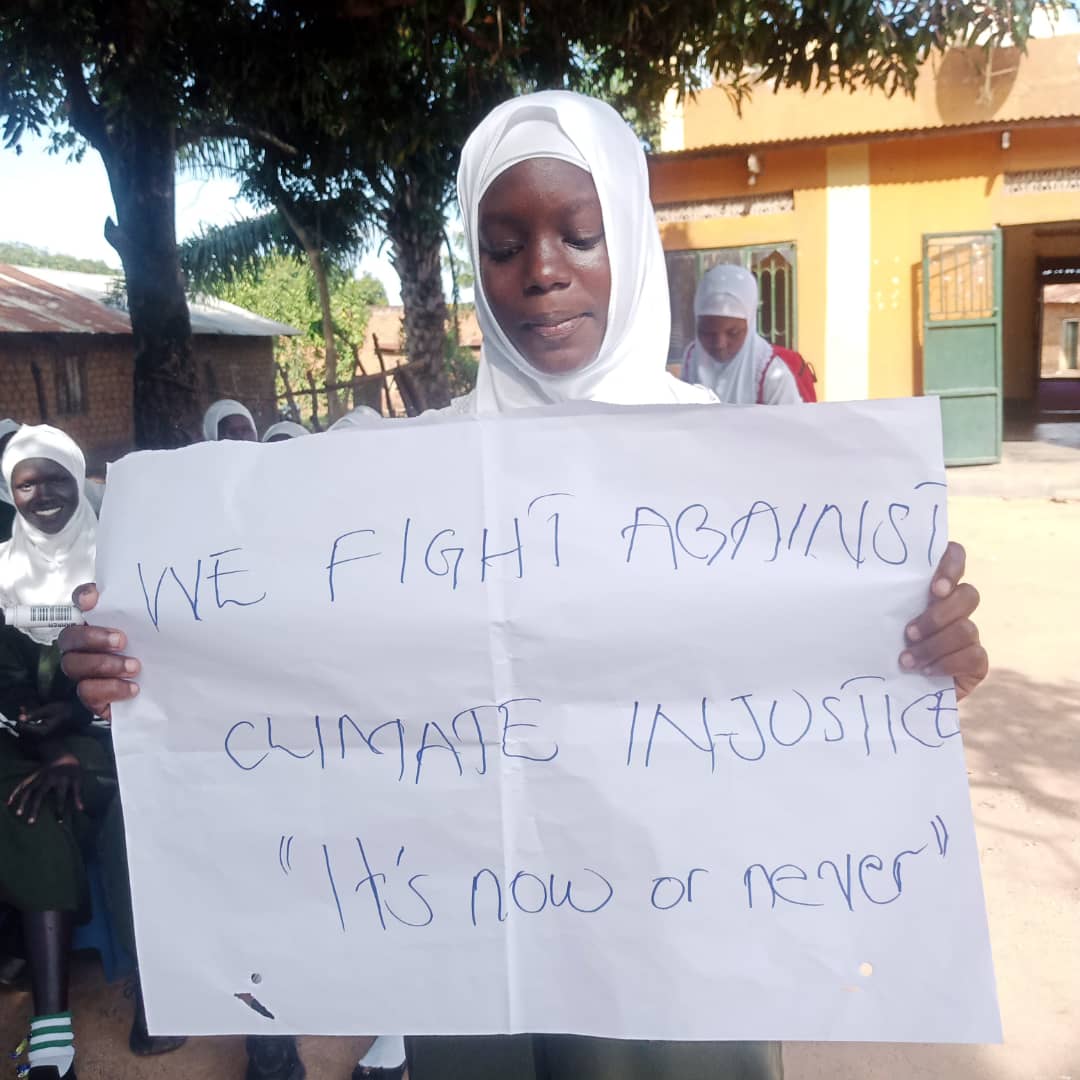 WE FIGHT AGAINST
CLIMATE INJUSTICE
"It's now or never"